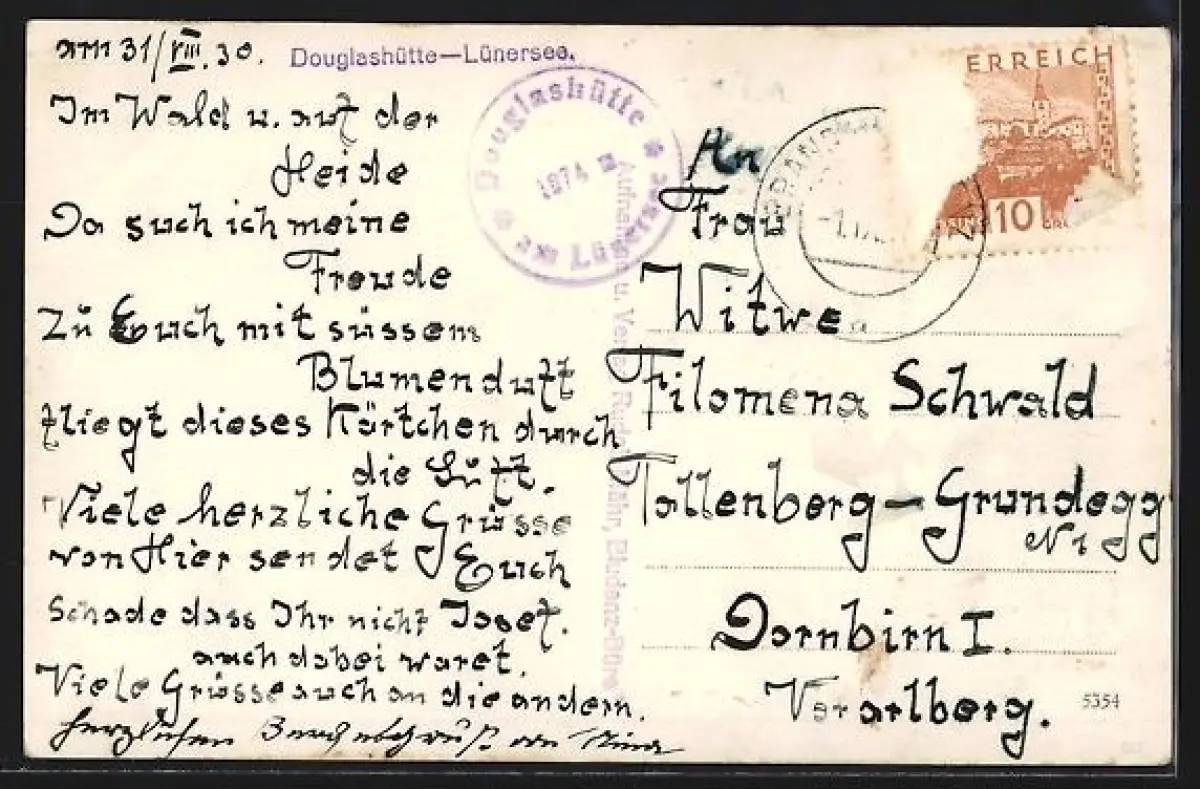 am 31/VIII.30.
Douglashütte—Lünersee.
Im Wald u. auf der
Heide
Da such ich meine
Freude
Zu Euch mit süssem
Blumenduft
fliegt dieses Kärtchen durch
die Luft.
Viele herzliche Grüsse
von Hier sendet Euch
Josef.
Schade dass Ihr nicht
auch dabei waret.
Viele Grüsse auch an die andern.
herzlichen
Douglashütte
1874
am Lünersee
BRAND
ERREICH
10
An
Frau
Witwe
Filomena Schwald
Tollenberg – Grundegg
Dornbirn I.
Vorarlberg.
5354